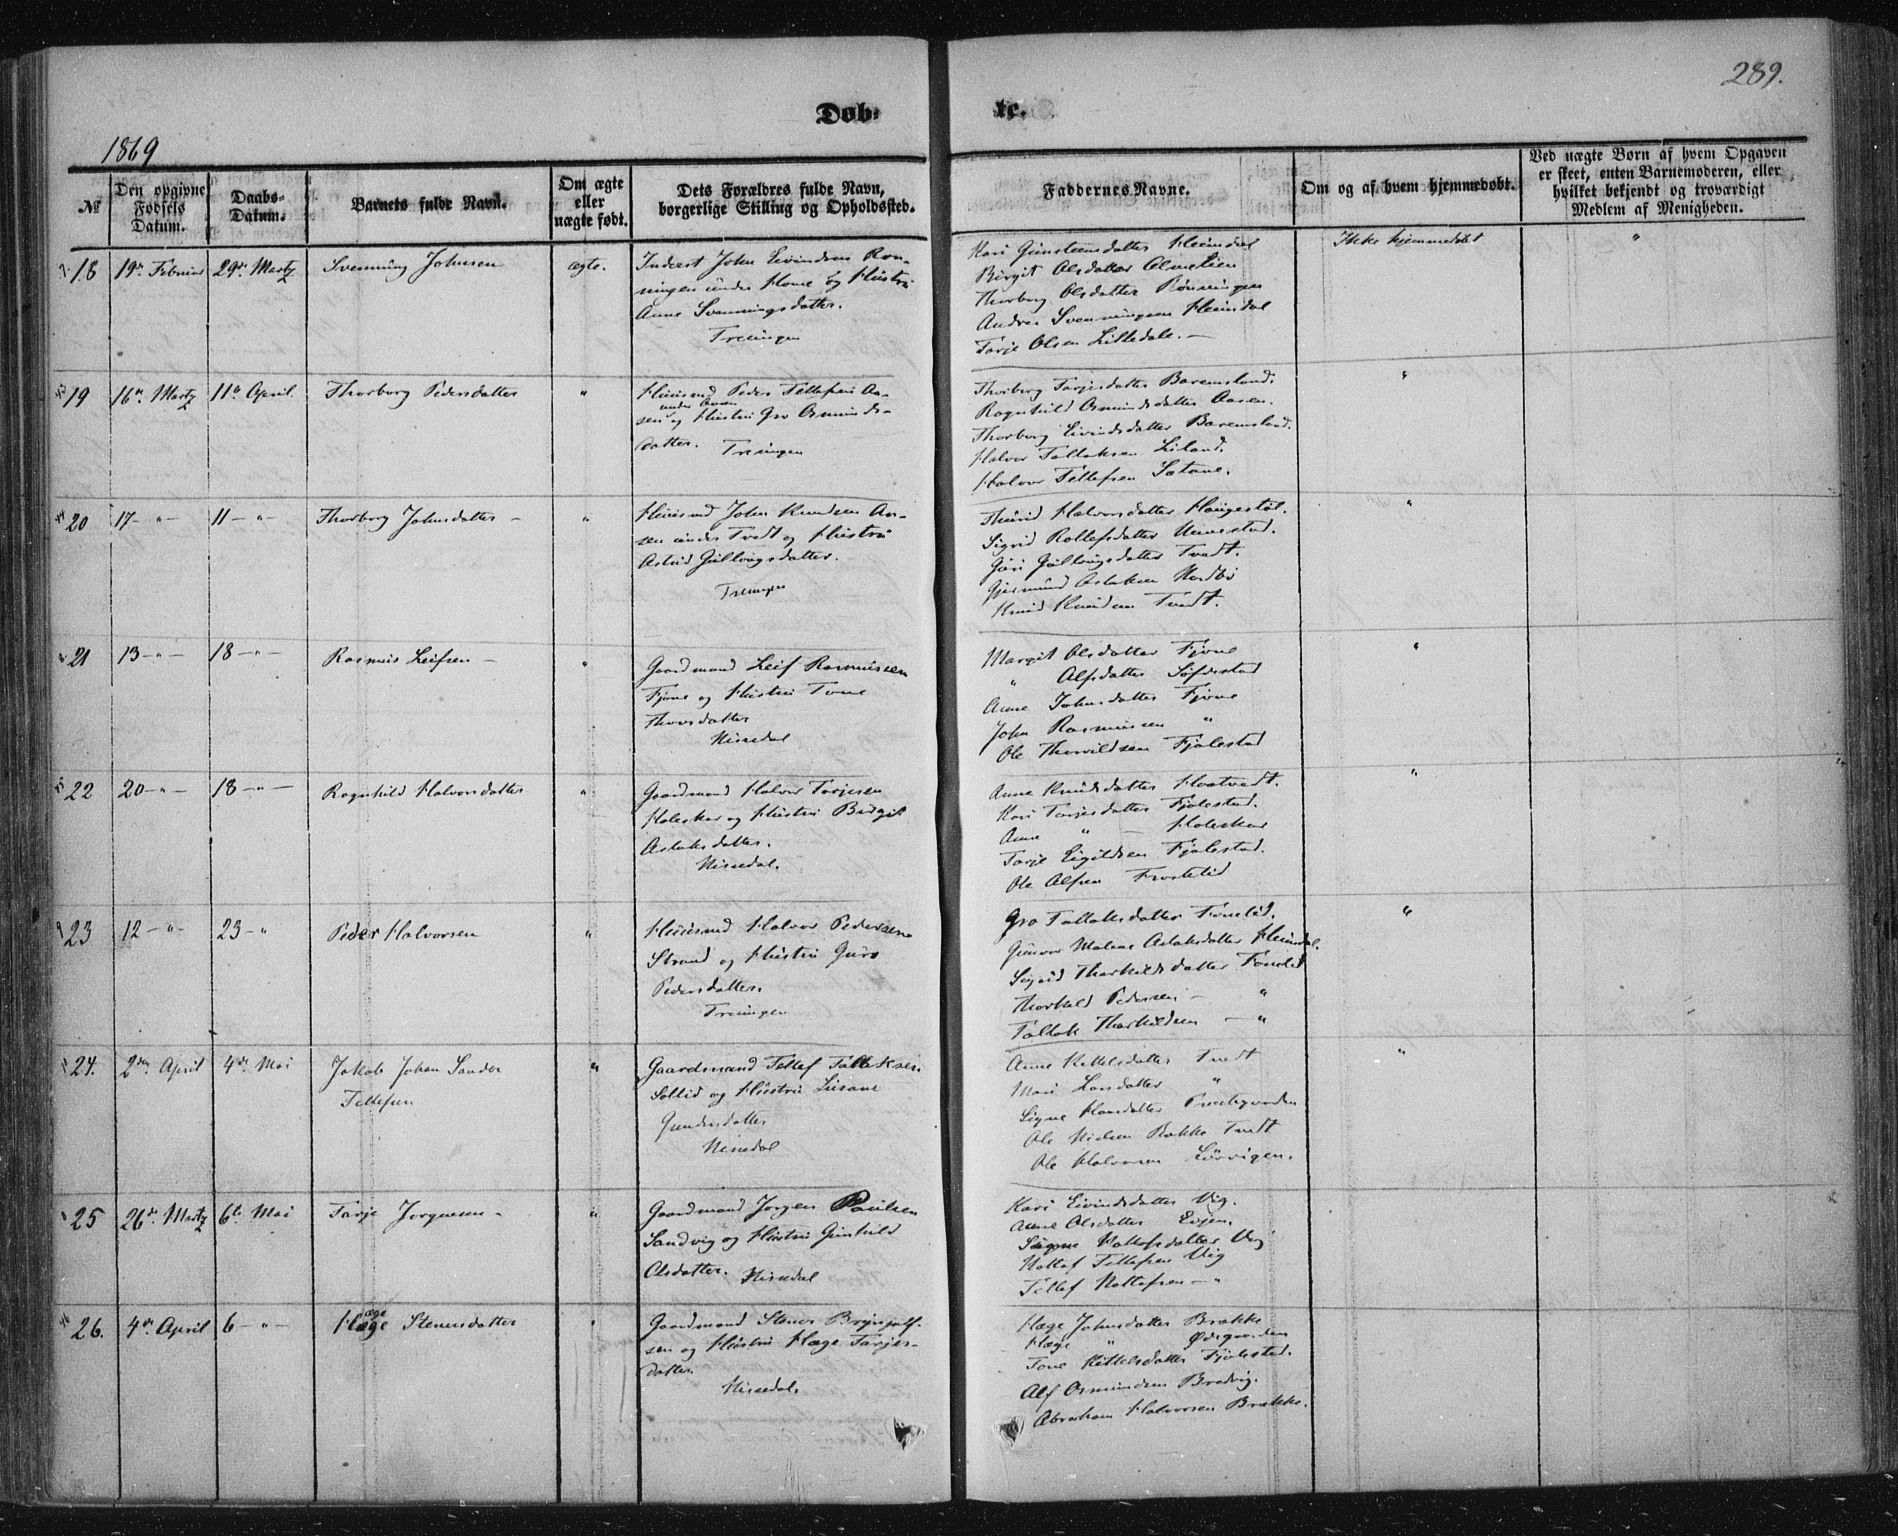 289.
Døb- te.
1869
№
Den opgivne Fødsels Datum.
Daabs-Datum.
Barnets fulde Navn.
Om ægte eller nægte født.
Dets Forældres fulde Navn, borgerlige Stilling og Opholdssted.
Faddernes Navne.
Om og af hvem hjemmedøbt.
Ved nægte Børn af hvem Opgaven er skeet, enten Barnemoderen, eller hvilket bekjendt og troværdigt Medlem af Menigheden.
18 19de Februar 29de Martz Svenning Johnsen ægte.
Inderst John Eivindsen Røn-
ningen under Home og Hustru
Anne Svenningsdatter.
Treungen
Kari Gunsteensdatter Heimdal
Birgit Olsdatter
Thorborg Olsdatter Rønningen
Andres Svenningsen Heimdal
Tarje Olsen Lilledale. —
Ikke hjemmedøbt "
19 16de Martz 11te April. Thorborg Pedersdatter "
Huusmd Peder Tellefsen Aa-
sen under Aasen og Hustru Gro Osmunds-
datter. Treungen
Thorborg Tarjesdatter Baremsland.
Ragnhild Osmundsdatter Aasen.
Thorborg Eivindsdatter Baremsland.
Halvor Tallaksen Liland.
Halvor Tellefsen Sætane.
"
20 17 — " — 11 — " — Thorborg Johnsdatter — "
Huusmd John Knudsen Aa-
sen under Tvedt og Hustru
Astrid Gullougsdatter.
Treungen
Thurid Halvorsdatter Haugestøl.
Sigrid Rollefsdatter
Guri Gullougsdatter Tvedt.
Gjermund Aslaksen Nordbø
Knud Knudsen Tvedt.
"
21 13 — " — 18 — " — Rasmus Leifsen — "
Gaardmand Leif Rasmussen
Fjone og Hustru Tone
Thorsdatter
Nissedal
Margit Olsdatter Fjone
" Alfsdatter
Anne Johnsdatter Fjone
John Rasmussen "
Ole Thorvildsen Fjalestad
"
22 20 — " — 18 — " — Ragnhild Halvorsdatter "
Gaardmand Halvor Tarjesen
Haleskar og Hustru Birgit
Aslaksdatter.
Nissedal.
Anne Knudsdatter Haatvedt.
Kari Tarjesdatter Fjalestad.
Anne " — Haleskar
Tarje Eigildsen Fjalestad.
Ole Alfsen Frostelid
"
23 12 — " — 23 — " Peder Halvorsen "
Huusmd Halvor Pedersen
Strand og Hustru Guro
Pedersdatter.
Treungen
Gro Tallaksdatter Fonelid.
Gunvor Malene Aslaksdatter Heimdal.
Sigrid Thorkildsdatter Fonelid
Thorkild Pedersen — "
Tallak Thorkildsen — "
"
24. 2den April 4de Mai Jakob Johan Sander
Tellefsen "
Gaardmand Tellef Tallaksen
Sollid og Hustru Susane
Gundersdatter
Nissedal
Anne Kittelsdatter Tvedt
Mari Larsdatter "
Signe Hansdatter Præstegaarden
Ole Nielsen Bakke Tvedt
Ole Halvorsen
"
25 26de Martz 6te Mai Tarje Jørgensen — "
Gaardmand Jørgen Paulsen
Sandvig og Hustru Gunhild
Olsdatter. Nissedal
Kari Eivindsdatter Vig.
Anne Olsdatter Evjen.
Signe Nottofsdatter Vig
Nottof Tellefsen Vig
Tellef Nottofsen — "
26. 4de April 6 — " — Hæge Stenersdatter "
Gaardmand Stener Brynjulf-
sen og Hustru Hæge Tarjes-
datter.
Nissedal.
Hæge Johnsdatter Brække
Hæge " Ødegaarden
Tone Kittelsdatter Fjalestad.
Alf Osmundsen Bradvig.
Abraham Halvorsen Brække.